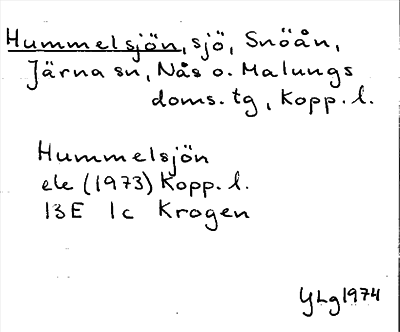 Hummelsjön, sjö, Snöån,
Järna sn, Nås o. Malungs
doms. tg, Kopp. l.
Hummelsjön
ek (1973) Kopp. l.
13E 1c Krogen
YLg 1974